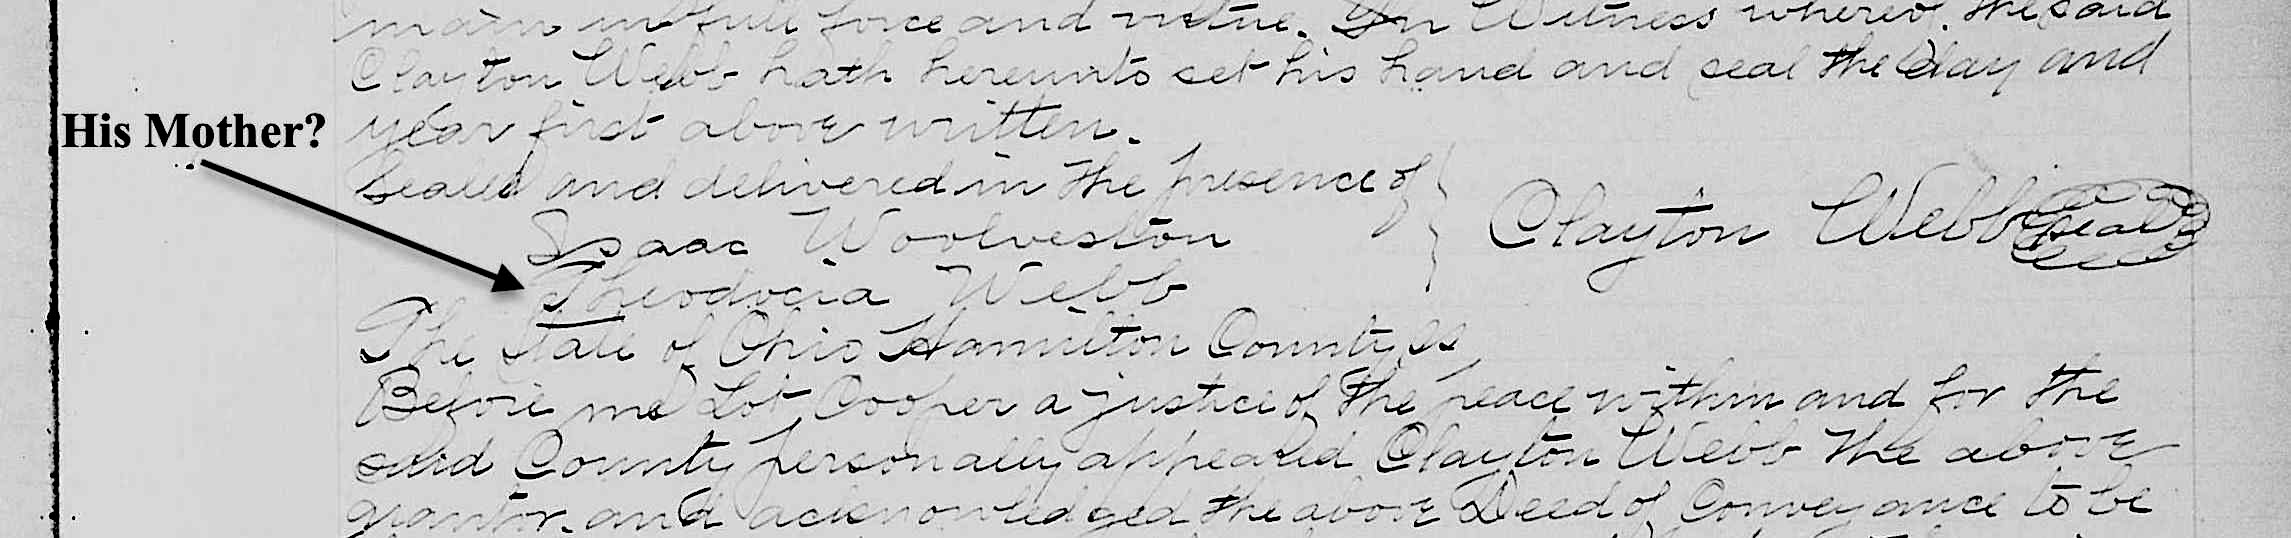 main in full force and virtue. In Witness whereof. the said
Clayton Webb hath hereunto set his hand and seal the day and
His Mother?
year first above written.
Sealed and delivered in the presence of
Isaac Woolveston
Clayton Webb Seal
Theodocia Webb
The State of Ohio Hamilton County SS,
Before me Lot Cooper a justice of the peace within and for the
said County personally appeared Clayton Webb the above
grantor. and acknowledged the above Deed of Conveyance to be